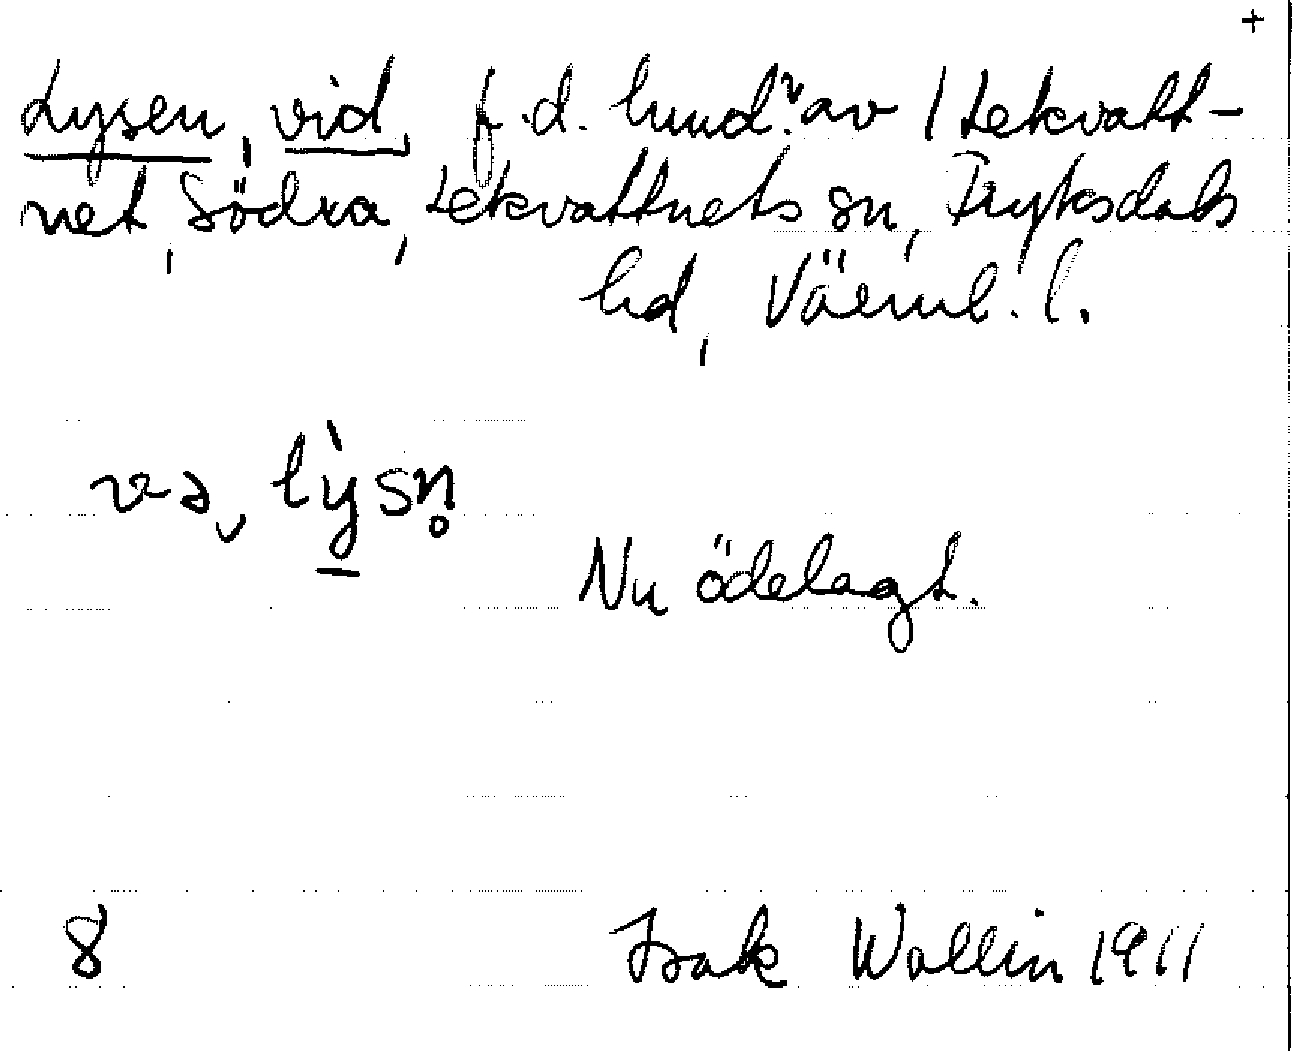 +
Lysen, vid, f.d. lund. av 1 Lekvatt-
net, Södra, Lekvattnets sn, Fryksdals
hd, Värml. l.
va, lỳsn̥
Nu ödelagt.
8 Isak Wallin 1911